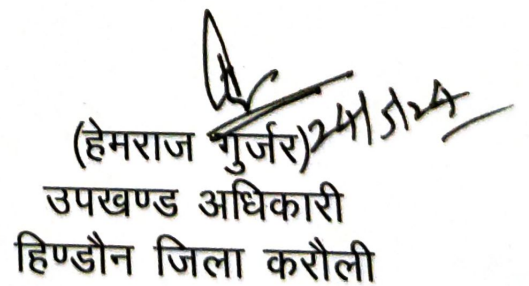 (हेमराज गुर्जर) 24/5/24
उपखण्ड अधिकारी
हिण्डौन जिला करौली